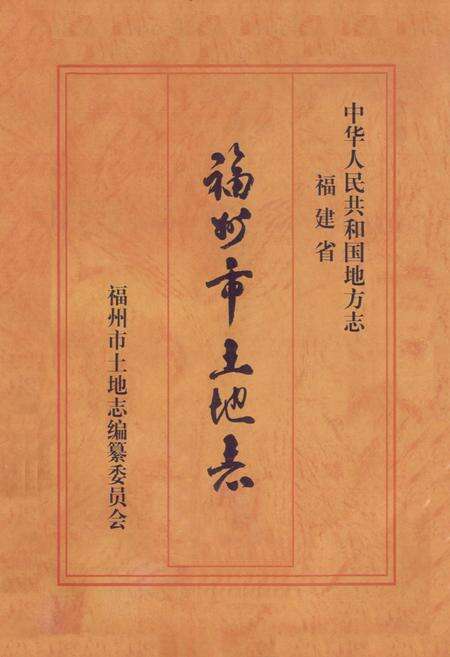 中华人民共和国地方志
福建省
福州市土地志
福州市土地志编纂委员会